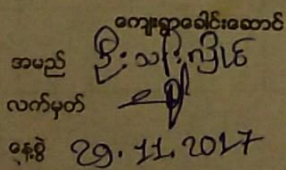 ကျေးရွာခေါင်းဆောင်
အမည် ဦးသင်းလှိုင်
လက်မှတ်
နေ့စွဲ 29.11.2017